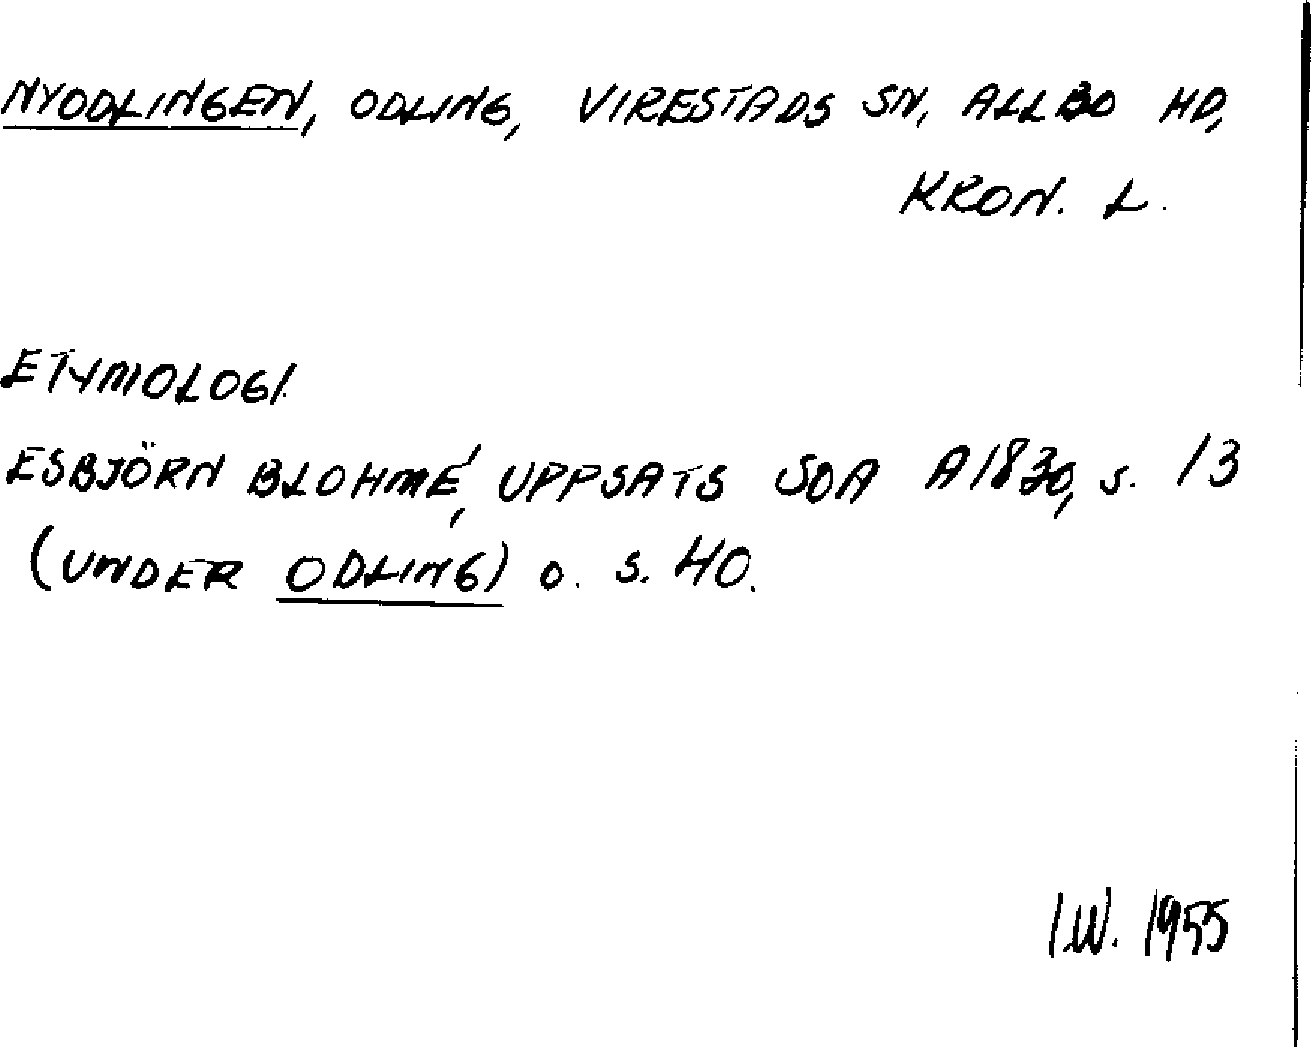 NYODLINGEN, ODLING, VIRESTADS SN, ALLBO HD,
KRON. L.
ETYMOLOGI.
ESBJÖRN BLOHMÉ, UPPSATS SOA A1830, s. 13
(UNDER ODLING) o. s. 40.
I.W. 1955